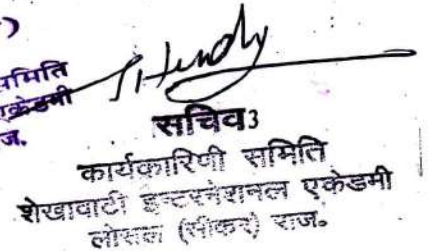 )
समिति
एकेडमी
ज.
सचिव3
कार्यकारिणी समिति
शेखावाटी इन्टरनेशनल एकेडमी
लोसल (सीकर) राज.